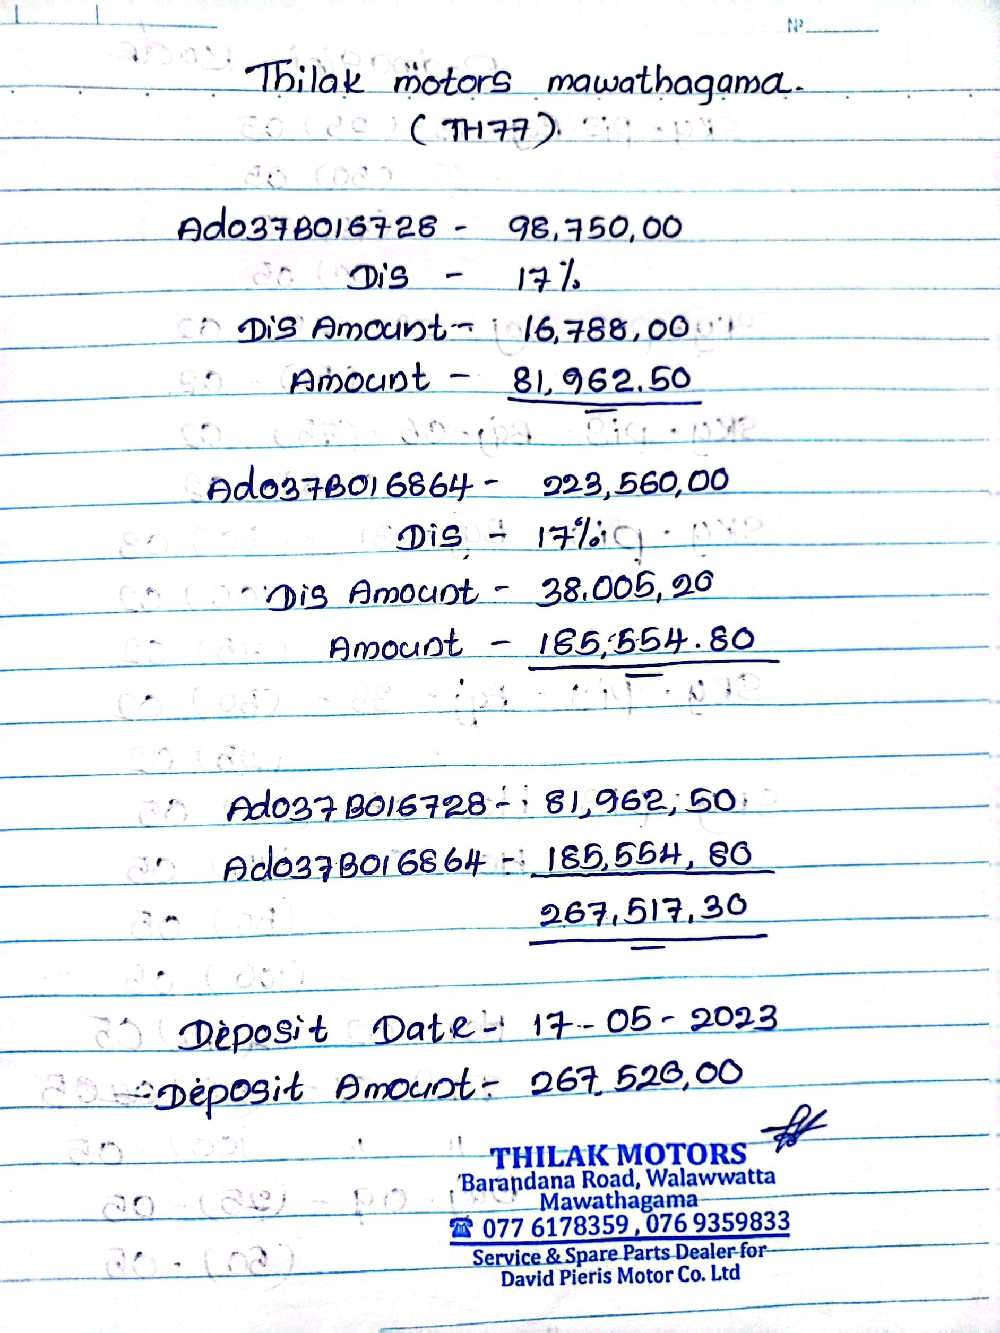 Nº
Thilak motors mawathagama.
(TH77).
Ad037B016728 - 98,750,00
Dis - 17%
Dis Amount - 16,788,00
Amount - 81,962.50
Ad037B016864 - 223,560,00
Dis - 17%
Dis Amount - 38.005,20
Amount - 185,554.80
Ad037B016728 - 81,962,50
Ad037B016864 - 185,554,80
267,517,30
Deposit Date - 17-05-2023
Deposit Amount - 267,520,00
THILAK MOTORS
Barandana Road, Walawwatta
Mawathagama
☎ 077 6178359, 076 9359833
Service & Spare Parts Dealer for
David Pieris Motor Co. Ltd